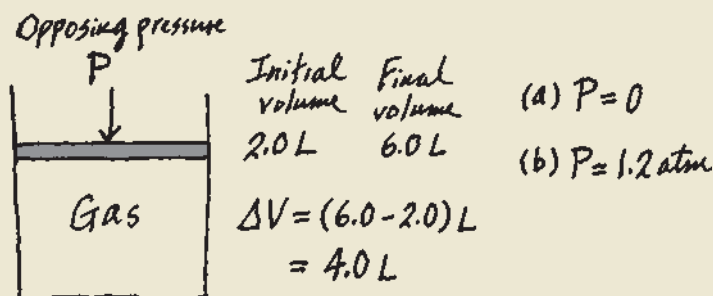 Opposing pressure
P
Initial volume
2.0 L
Final volume
6.0 L
ΔV = (6.0 - 2.0) L
= 4.0 L
(a) P = 0
(b) P = 1.2 atm
Gas